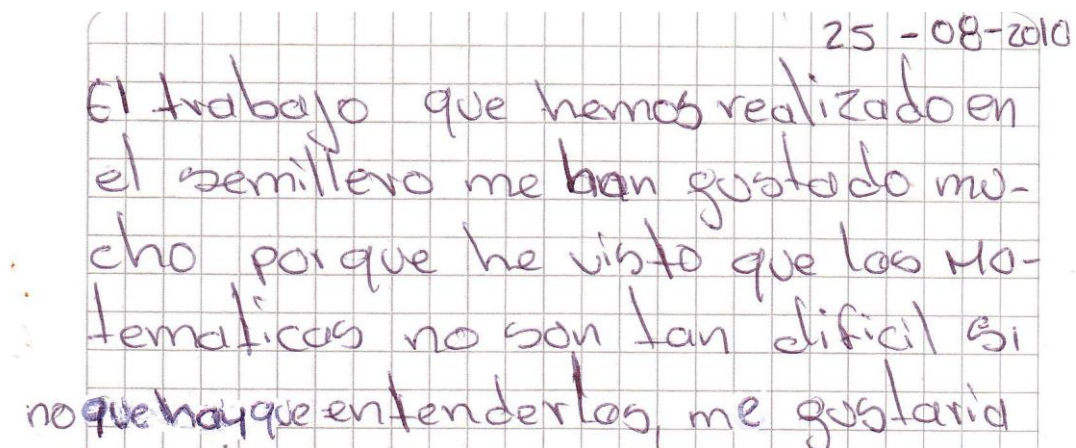 25-08-2010
El trabajo que hemos realizado en
el semillero me han gustado mu-
cho porque he visto que las Ma-
tematicas no son tan dificil si
no que hay que entenderlas, me gustaria